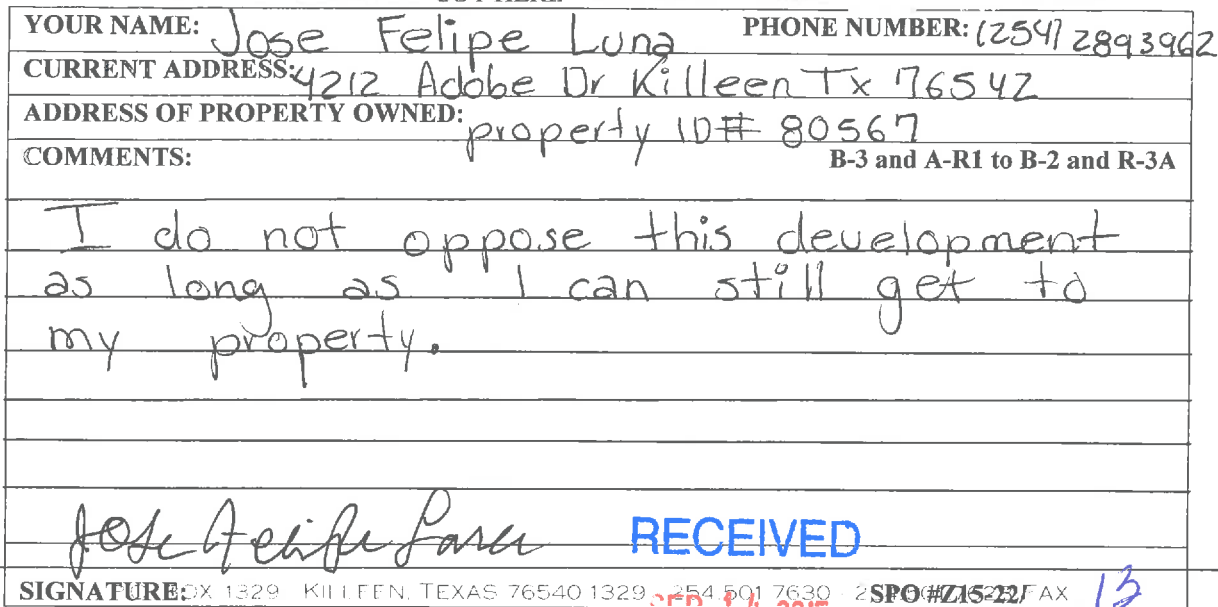 YOUR NAME: Jose Felipe Luna PHONE NUMBER: (254) 2893962
CURRENT ADDRESS: 4212 Adobe Dr Killeen Tx 76542
ADDRESS OF PROPERTY OWNED: property ID# 80567
COMMENTS: B-3 and A-R1 to B-2 and R-3A
I do not oppose this development
as long as I can still get to
my property.
Jose Felipe Luna RECEIVED
SIGNATURE: BOX 1329 KILLEEN, TEXAS 76540 1329 254 501 7630 SPO #Z15-22/ FAX 13